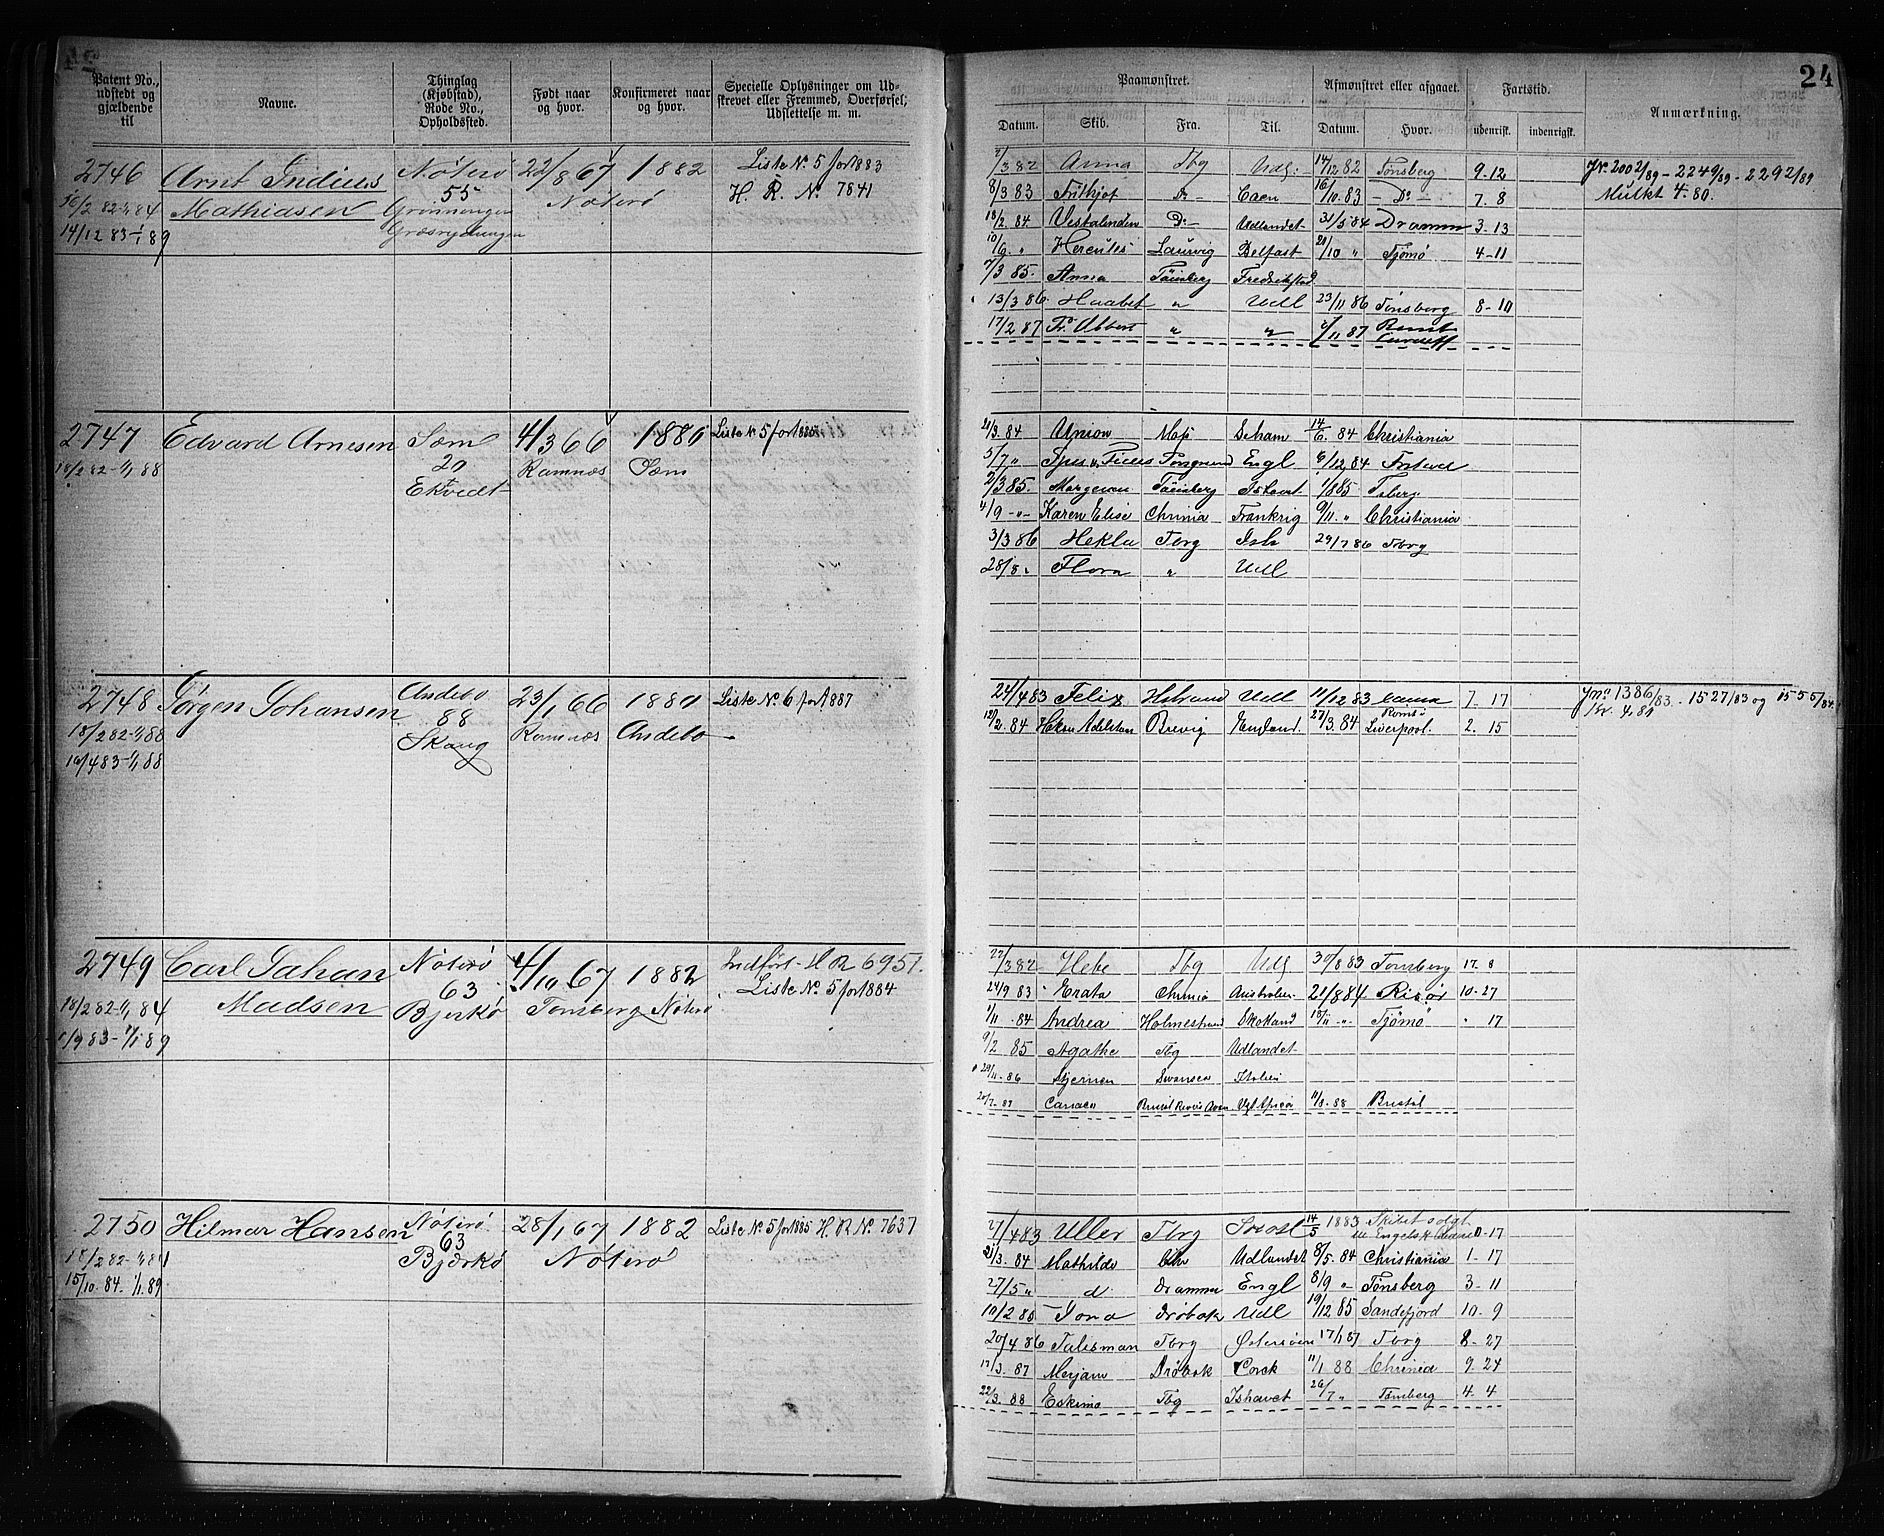 24
Patent No., udstedt og gjældende til
Navne.
Thinglag (Kjøbstad), Rode No., Opholdssted.
Født naar og hvor.
Konfirmeret naar og hvor.
Specielle Oplysninger om Udskrevet eller Fremmed, Overførsel, Udslettelse m. m.
Paamønstret.
Afmønstret eller afgaaet.
Fartstid.
Anmærkning.
Datum.
Skib.
Fra.
Til.
Datum.
Hvor.
udenrigsk.
indenrigsk.
2746
Arnt Indius Mathiasen
Nøterø
55
22/8 67
Nøterø
1882
Liste No. 5 for 1883
H. R. No. 7841
14/12 83 - 1/1 89
/3 82 Anna Tbg Udl: 14/12 82 Tønsberg 9-12
Jr. 2002/89 - 2249/89 - 2292/89
Mulkt 4.80.
8/3 83 Frithjof Do - Caen 16/10 83 - Do - 7. 8
18/2. 84 Vestalinden Do - Udlandet 31/5 84 Dramm 3-13
10/6. " Hercules Laurvig Belfast 20/10 " Tjømø 4-11
7/3 85. Anna Tönsberg Fredrikstad
13/3 86. Haabet " Udl 23/11 86 Tønsberg 8-10
17/2 87 " " /11 87
2747
Edvard Arnesen
Sæm
20
Ekvedt
4/3 66
Ramnæs
1880
Sæm
Liste No. 5 for 188
18/2 82 - 1/1 88
/3. 84 Union Moss 14/6. 84 Christiania
5/7 " Engl 6/12 84
2/3 85. Tönsberg Ishavet 1/8 85 Tsberg
4/9 - " - Karen Elise Chrnia Frankrig 9/11. " Christiania
3/3 86 Hekla Tbrg Ish 29/7 86 Tbrg
28/8 " Flora " Udl
2748
Jørgen Johansen
Andebo
88
Skaug
23/1 66
Ramnæs
1880
Andebo
Liste No. 6 for 1887
18/2 82 - 1/1 88
19/4 83 - 1/1 88
24/4 83 Felix Holmstrand Udl 11/12 83 7. 17
Jr no 1386/83. 1527/83 og 1555/84.
12/2. 84 Hakon Adelsten Brevig England. 27/3. 84 Liverpool. 2. 15
2749
Carl Johan Madsen
Nøterø
63
Bjerkø
4/10 67
Tønsberg
1882
Nøterø
Indført H R 6951.
Liste No. 5 for 1884
18/2 82 - 1/1 84
/9 83 - 1/1 89
22/3 82 Hebe Tbg Udl 30/8 83 Tønsberg 17. 8
24/9 83 Erato Chrnia Australien 21/8 84 Risør 10-27
1/11 - 84 Andrea Holmestrand Skotland 18/11 - " - Tjømø " 17
9/2 85 Agathe Tbg Udlandet
29/11 - 86 Stjernen Swansea Italien
20/7 - 87 11/8 - 88 Bristol
2750
Hilmar Hansen
Nøterø
63
Bjerkø
28/1 67
Nøterø
1882
Liste No. 5 for 1885 H. R No. 7637
18/2 82 - 1/1 84
15/10. 84 - 1/1. 89
27/4 83 Uller Tbrg 14/5 1883 Skibet solgt til Engelsk 0-17
21/3. 84 Mathilde Chr Udlandet 8/5. 84 Christiania 1-17
27/5 " d Drammen Engl 8/9 " Tønsberg 3-11
10/2 85 Iona Drøbak Udl 19/12 85 Sandefjord 10. 9
20/4 86 Talisman Tbrg Østersøen 17/1 87 Tbrg 8-27
17/3. 87 Mirjam Drøbak Cork 11/1 88 Chrnia 9. 24
22/3. 88 Eskimo Tbg Ishavet 26/7 " Tønsberg 4. 4